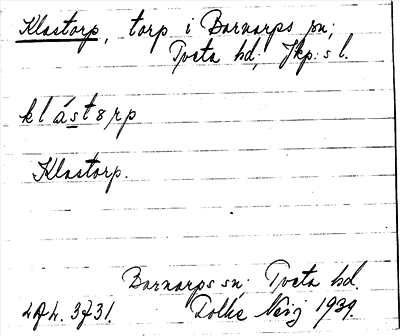 Klastorp, torp i Barnarps sn;
Tveta hd; Jkp:s l.
klástorp
Klastorp.
Barnarps sn; Tveta hd.
Folke Neij 1939.